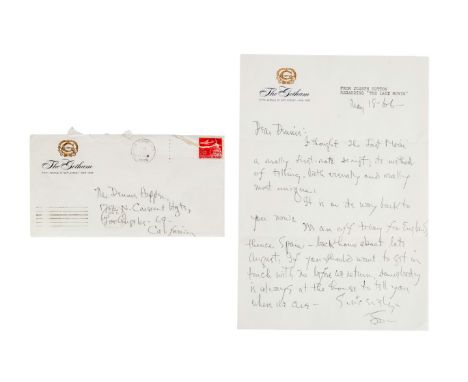 The Gotham
Mr. Dennis Hopper
Los Angeles 69
California
The Gotham
FIFTH AVENUE AT 55TH STREET · NEW YORK
FROM JOSEPH COTTON
REGARDING "THE LAST MOVIE"
May 18-66-
Dear Dennis:
I thought The Last Movie
a really first rate script, its method
of telling, both visually and orally
most unique.
It is on its way back to
you now.
We are off today for England,
thence Spain - back home about late
August. If you should want to get in
touch with me before we return, somebody
is always at the house to tell you
where we are -
Sincerely,